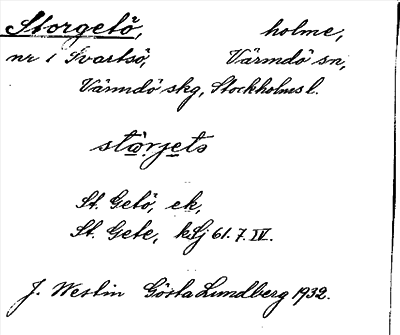 Storgetö, holme,
nr 1 Svartsö, Värmdö sn,
Värmdö skg, Stockholms l.
stòrjets
St. Getö, ek,
St. Gete, kSj 61. 7. IV.
J. Westin Gösta Lundberg 1932.